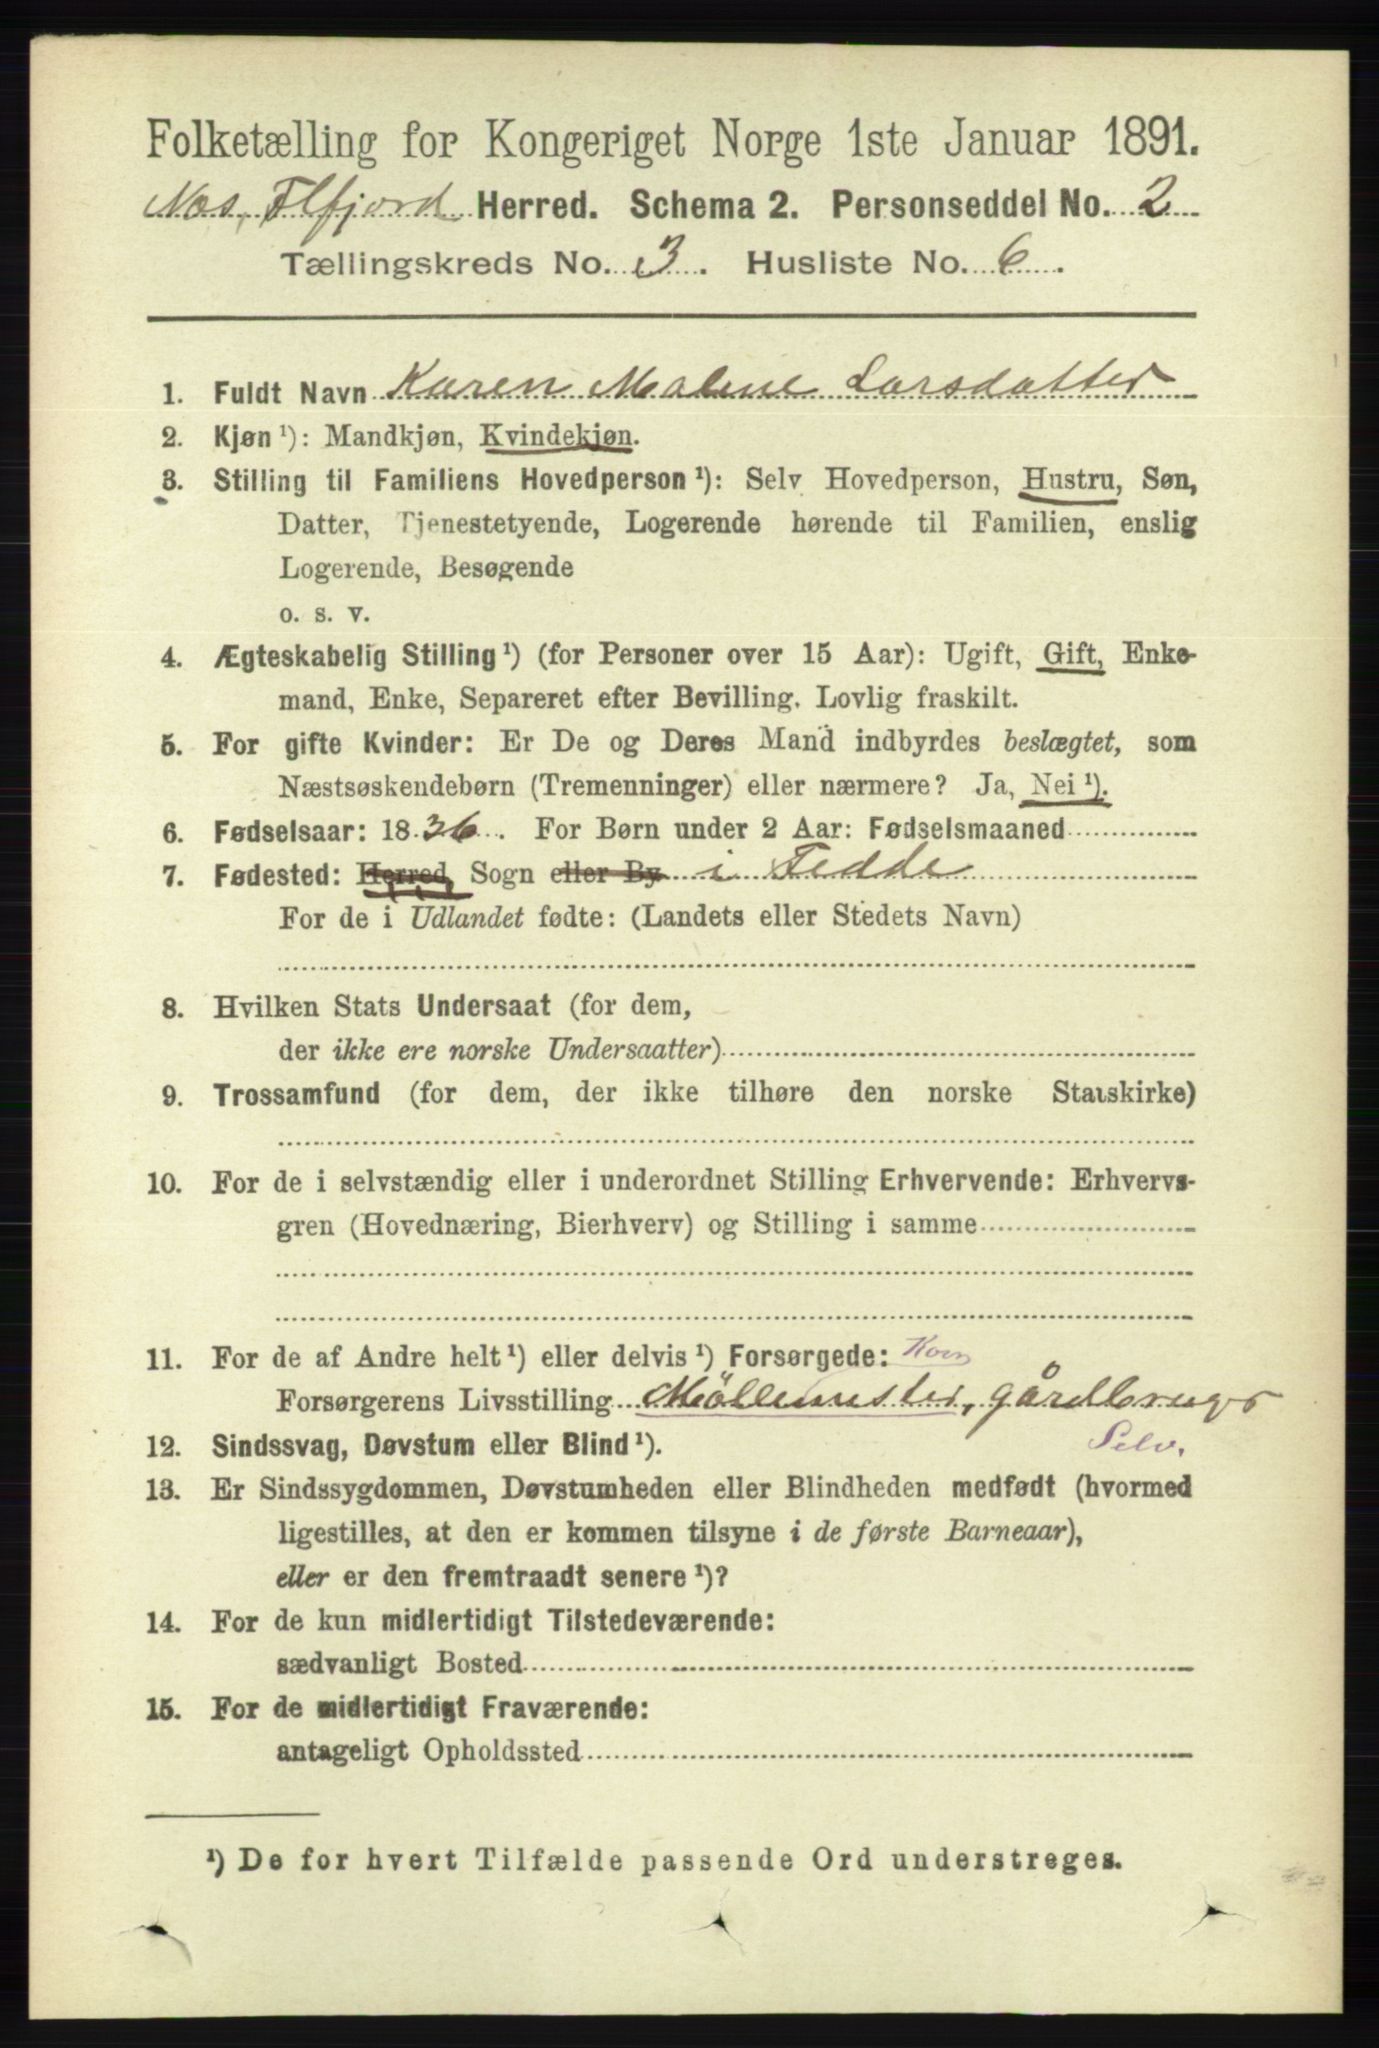 Folketælling for Kongeriget Norge 1ste Januar 1891.
Nes, Flfjord Herred. Schema 2. Personseddel No. 2
Tællingskreds No. 3. Husliste No. 6.
1. Fuldt Navn Karen Malene Larsdatter
2. Kjøn ¹): Mandkjøn, Kvindekjøn.
3. Stilling til Familiens Hovedperson ¹): Selv Hovedperson, Hustru, Søn,
Datter, Tjenestetyende, Logerende hørende til Familien, enslig
Logerende, Besøgende
o. s. v.
4. Ægteskabelig Stilling ¹) (for Personer over 15 Aar): Ugift, Gift, Enke-
mand, Enke, Separeret efter Bevilling. Lovlig fraskilt.
5. For gifte Kvinder: Er De og Deres Mand indbyrdes beslægtet, som
Næstsøskendebørn (Tremenninger) eller nærmere? Ja, Nei ¹).
6. Fødselsaar: 1836. For Børn under 2 Aar: Fødselsmaaned
7. Fødested: Herred, Sogn eller By i Fedde
For de i Udlandet fødte: (Landets eller Stedets Navn)
8. Hvilken Stats Undersaat (for dem,
der ikke ere norske Undersaatter)
9. Trossamfund (for dem, der ikke tilhøre den norske Statskirke)
10. For de i selvstændig eller i underordnet Stilling Erhvervende: Erhvervs-
gren (Hovednæring, Bierhverv) og Stilling i samme
11. For de af Andre helt ¹) eller delvis ¹) Forsørgede: Korn
Forsørgerens Livsstilling Möllemester, gårdbruger
12. Sindssvag, Døvstum eller Blind ¹). Selv.
13. Er Sindssygdommen, Døvstumheden eller Blindheden medfødt (hvormed
ligestilles, at den er kommen tilsyne i de første Barneaar),
eller er den fremtraadt senere ¹)?
14. For de kun midlertidigt Tilstedeværende:
sædvanligt Bosted
15. For de midlertidigt Fraværende:
antageligt Opholdssted
¹) De for hvert Tilfælde passende Ord understreges.